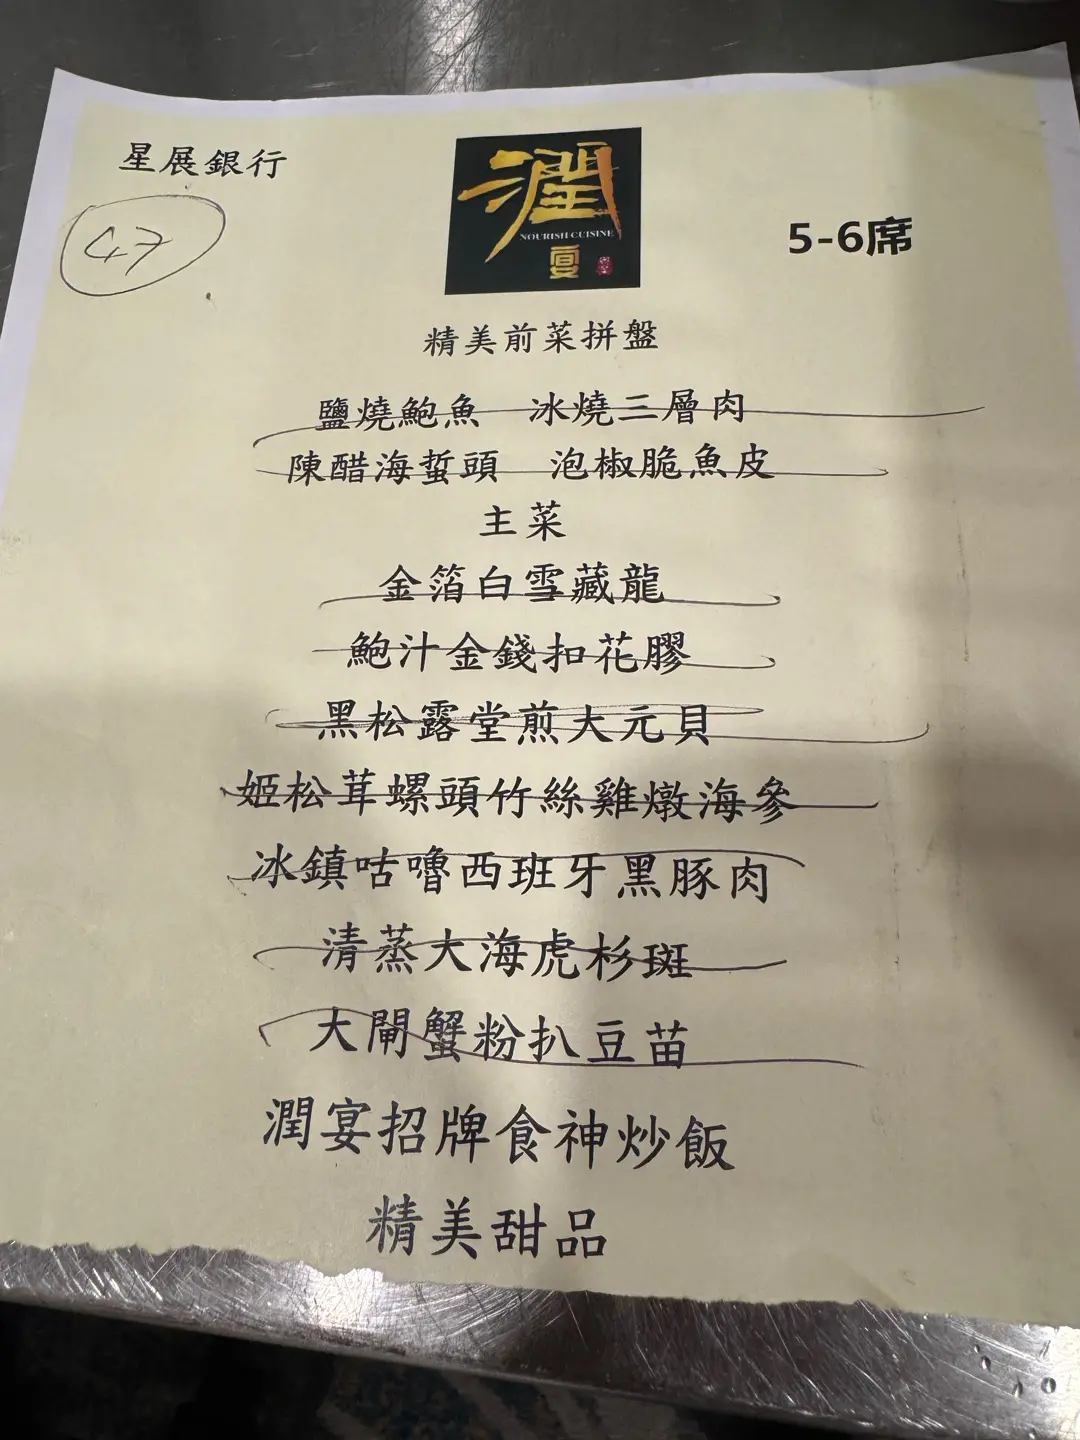 星展銀行
47
潤
NOURISH CUISINE
宴
5-6席
精美前菜拼盤
鹽燒鮑魚 冰燒三層肉
陳醋海蜇頭 泡椒脆魚皮
主菜
金箔白雪藏龍
鮑汁金錢扣花膠
黑松露堂煎大元貝
姬松茸螺頭竹絲雞燉海參
冰鎮咕嚕西班牙黑豚肉
清蒸大海虎杉斑
大閘蟹粉扒豆苗
潤宴招牌食神炒飯
精美甜品